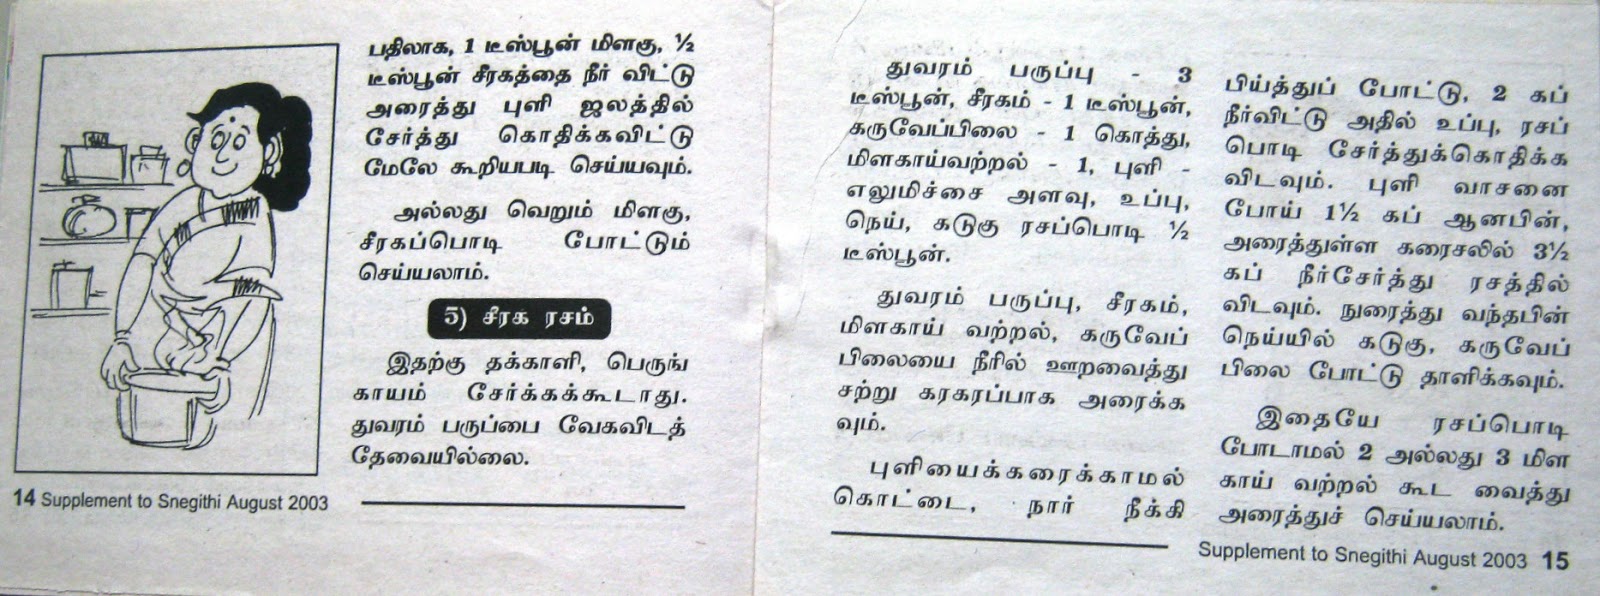 பதிலாக, 1 டீஸ்பூன் மிளகு, ½
டீஸ்பூன் சீரகத்தை நீர் விட்டு
அரைத்து புளி ஜலத்தில்
சேர்த்து கொதிக்கவிட்டு
மேலே கூறியபடி செய்யவும்.
அல்லது வெறும் மிளகு,
சீரகப்பொடி போட்டும்
செய்யலாம்.
5) சீரக ரசம்
இதற்கு தக்காளி, பெருங்
காயம் சேர்க்கக்கூடாது.
துவரம் பருப்பை வேகவிடத்
தேவையில்லை.
14 Supplement to Snegithi August 2003
துவரம் பருப்பு - 3
டீஸ்பூன், சீரகம் - 1 டீஸ்பூன்,
கருவேப்பிலை - 1 கொத்து,
மிளகாய்வற்றல் - 1, புளி -
எலுமிச்சை அளவு, உப்பு,
நெய், கடுகு ரசப்பொடி ½
டீஸ்பூன்.
துவரம் பருப்பு, சீரகம்,
மிளகாய் வற்றல், கருவேப்
பிலையை நீரில் ஊறவைத்து
சற்று கரகரப்பாக அரைக்க
வும்.
புளியைக்கரைக்காமல்
கொட்டை, நார் நீக்கி
பிய்த்துப் போட்டு, 2 கப்
நீர்விட்டு அதில் உப்பு, ரசப்
பொடி சேர்த்துக்கொதிக்க
விடவும். புளி வாசனை
போய் 1½ கப் ஆனபின்,
அரைத்துள்ள கரைசலில் 3½
கப் நீர்சேர்த்து ரசத்தில்
விடவும். நுரைத்து வந்தபின்
நெய்யில் கடுகு, கருவேப்
பிலை போட்டு தாளிக்கவும்.
இதையே ரசப்பொடி
போடாமல் 2 அல்லது 3 மிள
காய் வற்றல் கூட வைத்து
அரைத்துச் செய்யலாம்.
Supplement to Snegithi August 2003 15